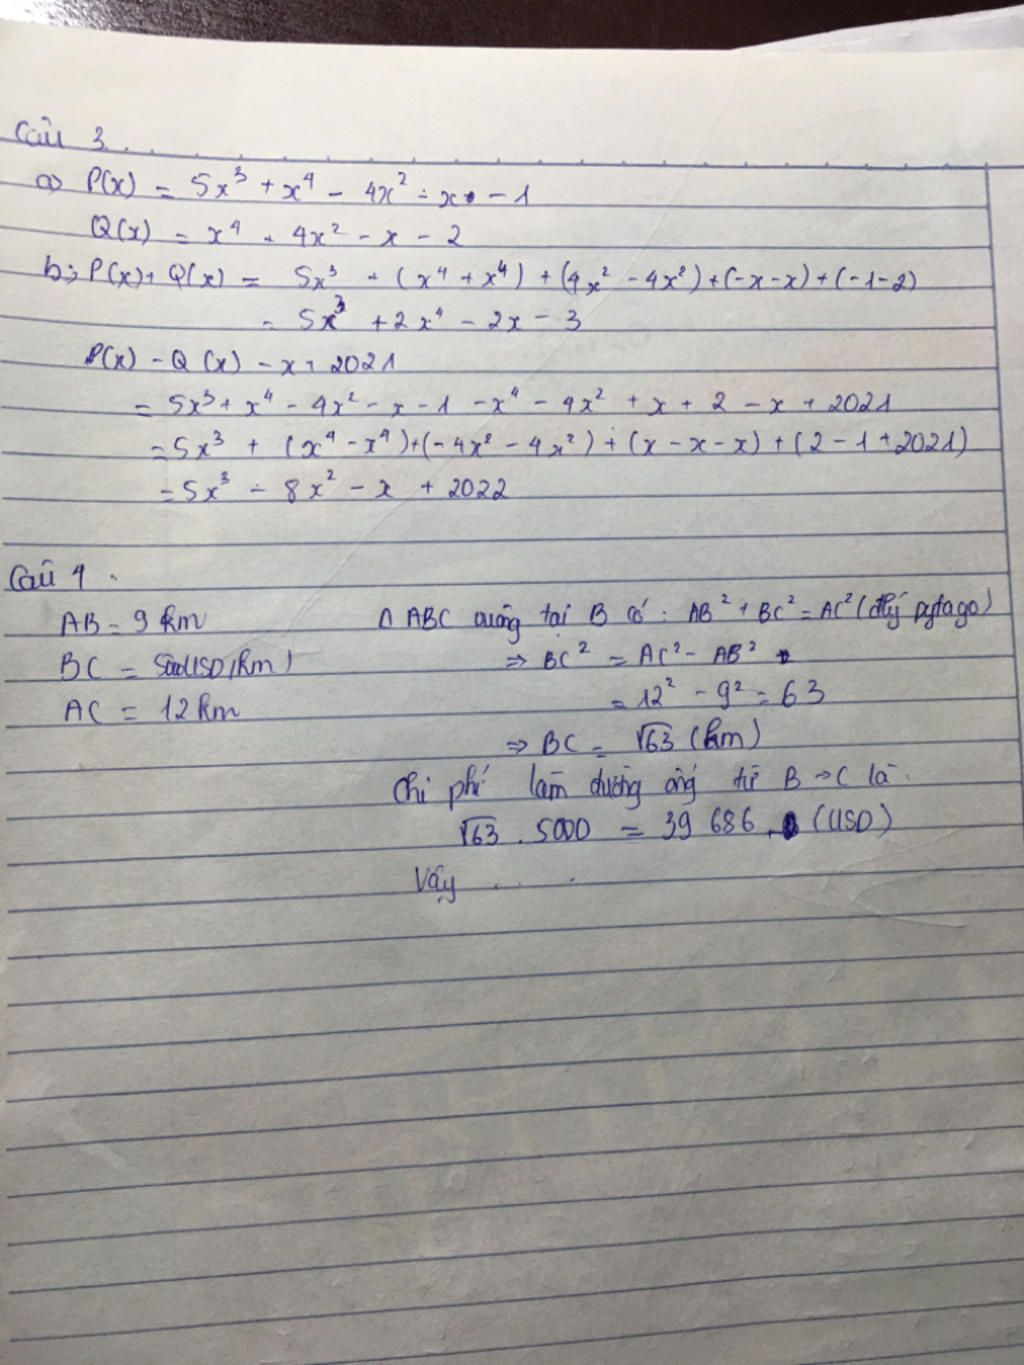 Câu 3.
a) P(x) = 5x³ + x⁴ - 4x² - x - 1
Q(x) = x⁴ + 4x² - x - 2
b) P(x) + Q(x) = 5x³ + (x⁴ + x⁴) + (4x² - 4x²) + (-x - x) + (-1-2)
= 5x³ + 2x⁴ - 2x - 3
P(x) - Q(x) - x + 2021
= 5x³ + x⁴ - 4x² - x - 1 - x⁴ - 4x² + x + 2 - x + 2021
= 5x³ + (x⁴ - x⁴) + (-4x² - 4x²) + (x - x - x) + (2 - 1 + 2021)
= 5x³ - 8x² - x + 2022
Câu 4.
AB = 9 km
BC = 5000USD/(km)
AC = 12 km
Δ ABC vuông tại B có: AB² + BC² = AC² (đlý pytago)
⇒ BC² = AC² - AB²
= 12² - 9² = 63
⇒ BC = √63 (km)
Chi phí làm đường ống từ B → C là
√63 . 5000 = 39 686 (USD)
Vậy ....